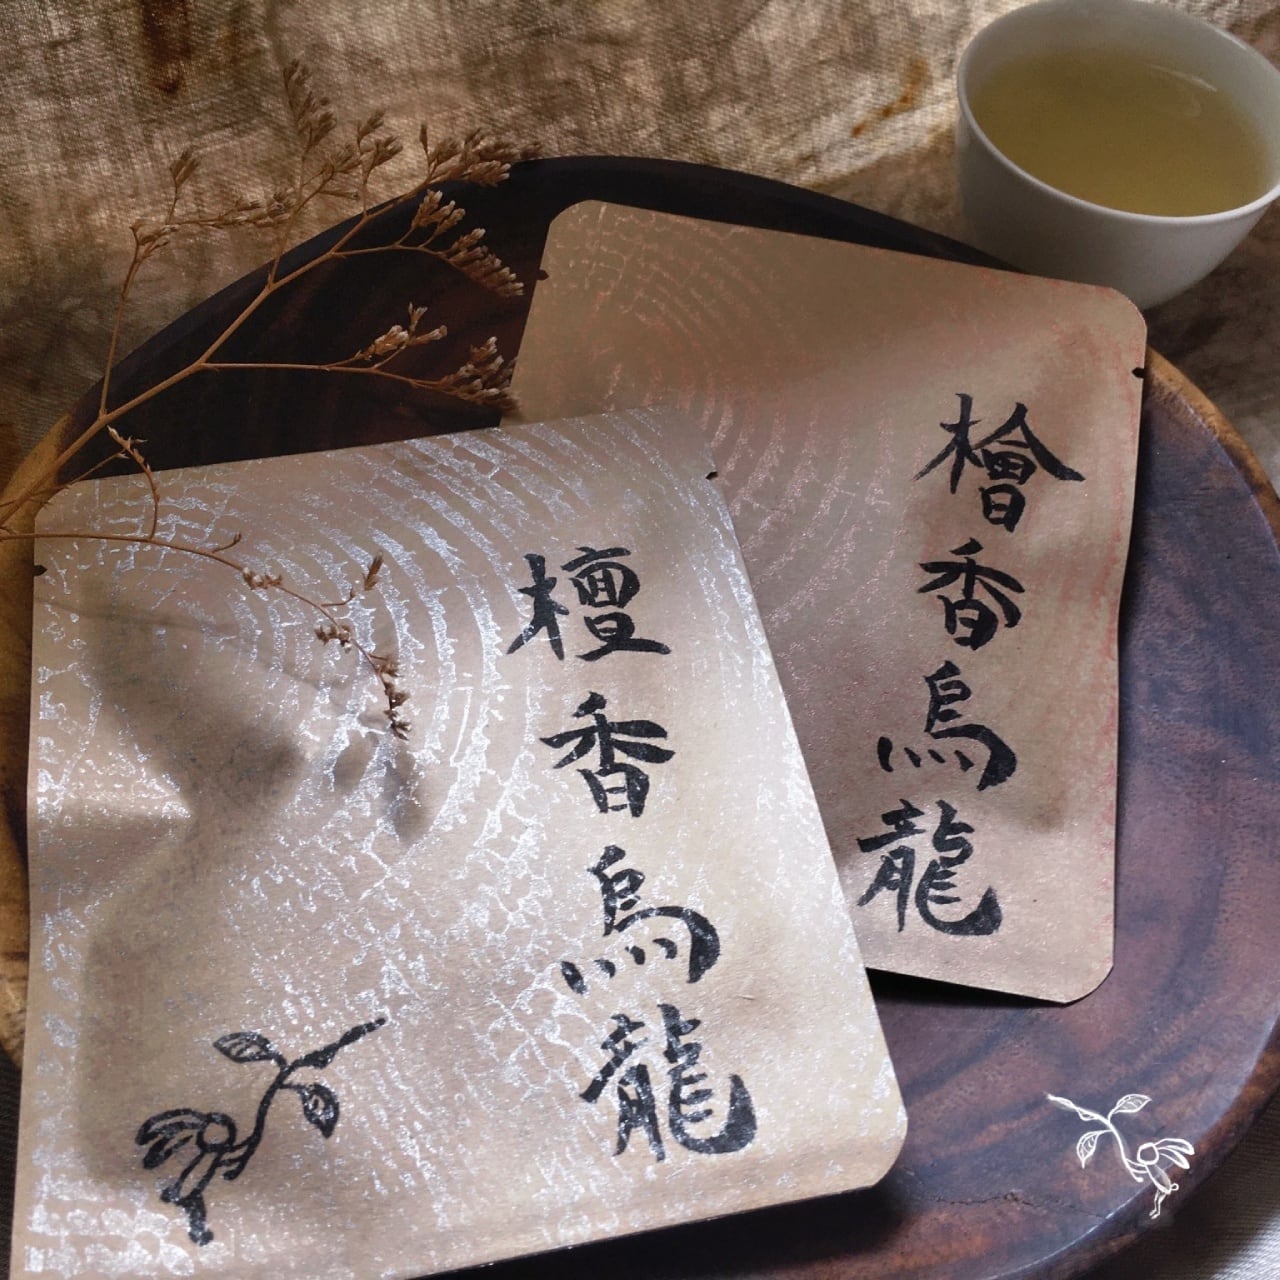 檀香烏龍
檜香烏龍